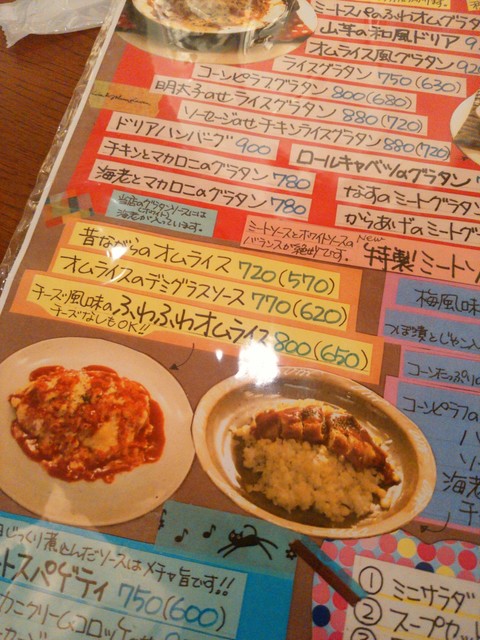 ミートスパのふわオムグラタ
山芋の和風ドリア 9
オムライス風グラタン 920
ライスグラタン 750(630)
コーンピラフグラタン 800(680)
明太子のせライスグラタン 880(720)
ソーセージのせチキンライスグラタン 880(720)
ドリアハンバーグ 900
チキンとマカロニのグラタン 780
海老とマカロニのグラタン 780
ロールキャベツのグラタン
なすのミートグラ
からあげのミートグ
当店のグラタンソースには
海老が入っています。
ミートソースとホワイトソースの
バランスが絶妙です。
New
特製!ミートソ
昔ながらのオムライス 720(570)
オムライスのデミグラスソース 770(620)
チーズ風味のふわふわオムライス 800(650)
チーズなしもOK!!
梅風味
つぼ漬とじゃこ入
コーンたっぷり
コーンピラフの
ハ
ソー
海老
チ
じっくり煮込んだソースはメチャ旨です!!
ートスパゲティ 750(600)
カニクリームコロッケ
① ミニサラダ
② スープカ